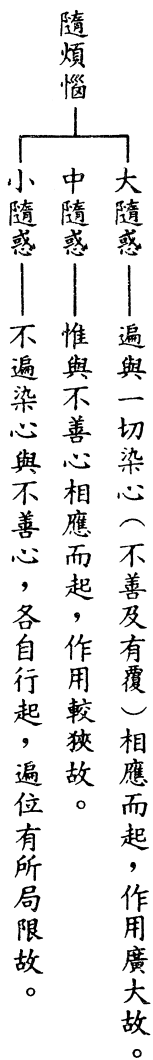 隨煩惱
大隨惑——遍與一切染心（不善及有覆）相應而起，作用廣大故。
中隨惑——惟與不善心相應而起，作用較狹故。
小隨惑——不遍染心與不善心，各自行起，遍位有所局限故。